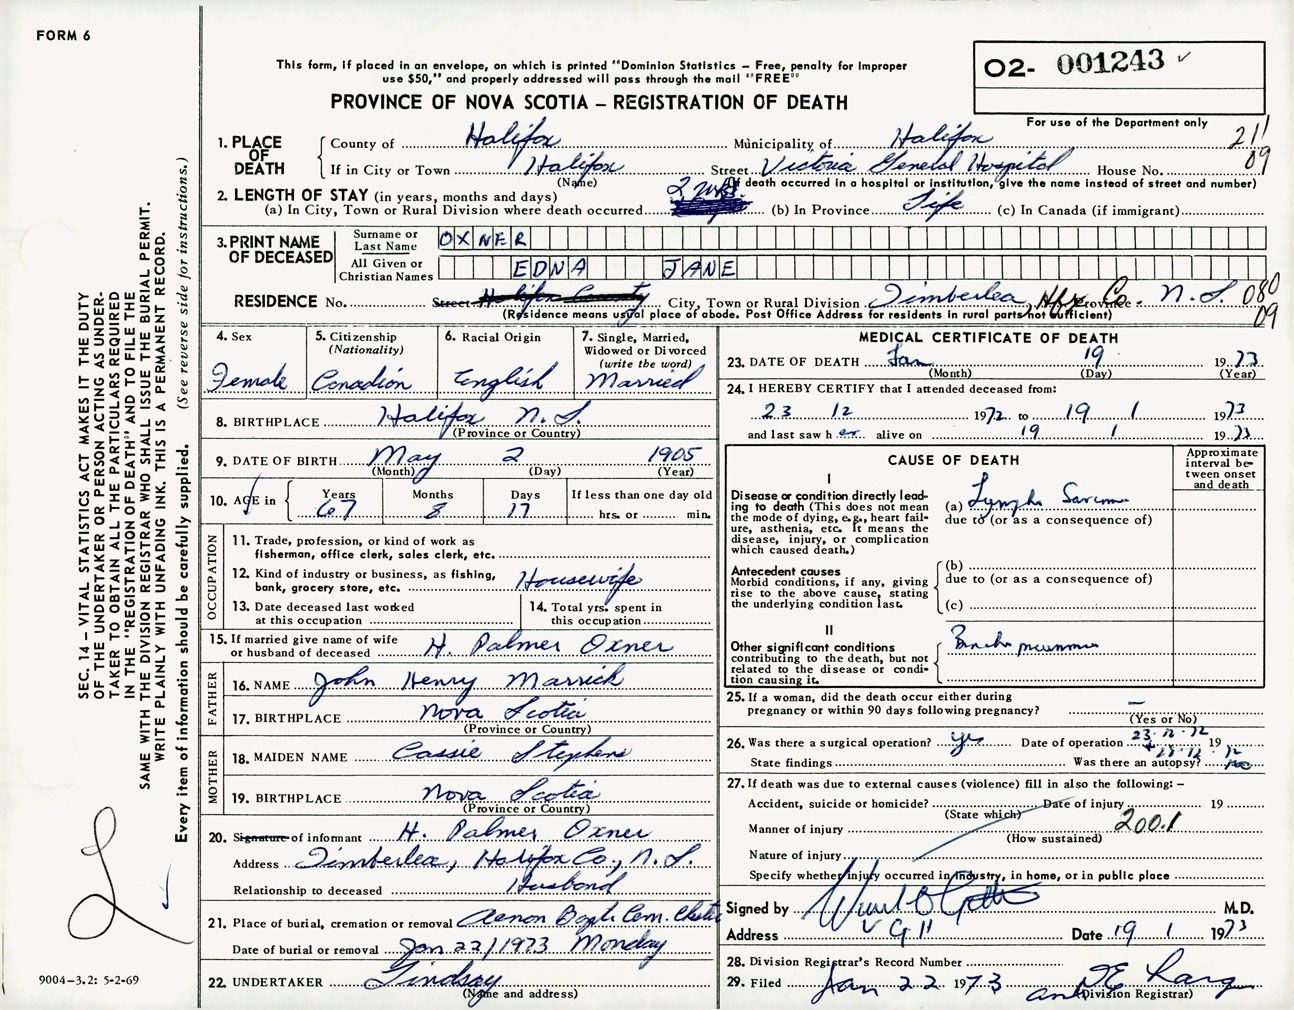 FORM 6
This form, if placed in an envelope, on which is printed "Dominion Statistics – Free, penalty for improper
use $50," and properly addressed will pass through the mail "FREE"
PROVINCE OF NOVA SCOTIA – REGISTRATION OF DEATH
O2- 001243 ✓
For use of the Department only
SEC. 14 – VITAL STATISTICS ACT MAKES IT THE DUTY
OF THE UNDERTAKER OR PERSON ACTING AS UNDER-
TAKER TO OBTAIN ALL THE PARTICULARS REQUIRED
IN THE "REGISTRATION OF DEATH" AND TO FILE THE
SAME WITH THE DIVISION REGISTRAR WHO SHALL ISSUE THE BURIAL PERMIT.
WRITE PLAINLY WITH UNFADING INK. THIS IS A PERMANENT RECORD.
Every item of information should be carefully supplied. (See reverse side for instructions.)
1. PLACE OF DEATH County of Halifax Municipality of Halifax 211
If in City or Town Halifax Street Victoria General Hospital House No. 09
(Name) (If death occurred in a hospital or institution, give the name instead of street and number)
2. LENGTH OF STAY (in years, months and days)
(a) In City, Town or Rural Division where death occurred 2 wks. (b) In Province Life (c) In Canada (if immigrant)
3. PRINT NAME OF DECEASED Surname or Last Name OXNER
All Given or Christian Names EDNA JANE
RESIDENCE No. Street Halifax County City, Town or Rural Division Timberlea, Hfx Co. Province N.S. 080
(Residence means usual place of abode. Post Office Address for residents in rural parts not sufficient) 09
4. Sex Female
5. Citizenship (Nationality) Canadian
6. Racial Origin English
7. Single, Married, Widowed or Divorced (write the word) Married
8. BIRTHPLACE Halifax N.S.
(Province or Country)
9. DATE OF BIRTH May 2 1905
(Month) (Day) (Year)
10. AGE in Years 67 Months 8 Days 17 If less than one day old hrs. or min.
OCCUPATION
11. Trade, profession, or kind of work as
fisherman, office clerk, sales clerk, etc.
12. Kind of industry or business, as fishing,
bank, grocery store, etc. Housewife
13. Date deceased last worked
at this occupation
14. Total yrs. spent in
this occupation
15. If married give name of wife
or husband of deceased H. Palmer Oxner
FATHER
16. NAME John Henry Marrick
17. BIRTHPLACE Nova Scotia
(Province or Country)
MOTHER
18. MAIDEN NAME Cassie Stephens
19. BIRTHPLACE Nova Scotia
(Province or Country)
20. Signature of informant H. Palmer Oxner
Address Timberlea, Halifax Co., N.S.
Relationship to deceased Husband
21. Place of burial, cremation or removal Aenon Bapt. Cem. Chester
Date of burial or removal Jan 22/1973 Monday
22. UNDERTAKER Lindsay
(Name and address)
9004–3.2: 5-2-69
MEDICAL CERTIFICATE OF DEATH
23. DATE OF DEATH Jan 19 1973
(Month) (Day) (Year)
24. I HEREBY CERTIFY that I attended deceased from:
23 12 1972 to 19 1 1973
and last saw her alive on 19 1 1973
CAUSE OF DEATH
Approximate
interval be-
tween onset
and death
I
Disease or condition directly lead-
ing to death (This does not mean
the mode of dying, e.g., heart fail-
ure, asthenia, etc. It means the
disease, injury, or complication
which caused death.)
(a) Lympho Sarcoma
due to (or as a consequence of)
Antecedent causes
Morbid conditions, if any, giving
rise to the above cause, stating
the underlying condition last.
(b)
due to (or as a consequence of)
(c)
II
Other significant conditions
contributing to the death, but not
related to the disease or condi-
tion causing it.
Bronchopneumonia
25. If a woman, did the death occur either during
pregnancy or within 90 days following pregnancy? –
(Yes or No)
26. Was there a surgical operation? yes Date of operation 23·12·72 19
+ 28·12·72
State findings Was there an autopsy? no
27. If death was due to external causes (violence) fill in also the following: –
Accident, suicide or homicide? Date of injury 19
(State which)
Manner of injury 200.1
(How sustained)
Nature of injury
Specify whether injury occurred in industry, in home, or in public place
Signed by M.D.
Address V G H Date 19 1 1973
28. Division Registrar's Record Number
29. Filed Jan 22 1973
(Division Registrar)